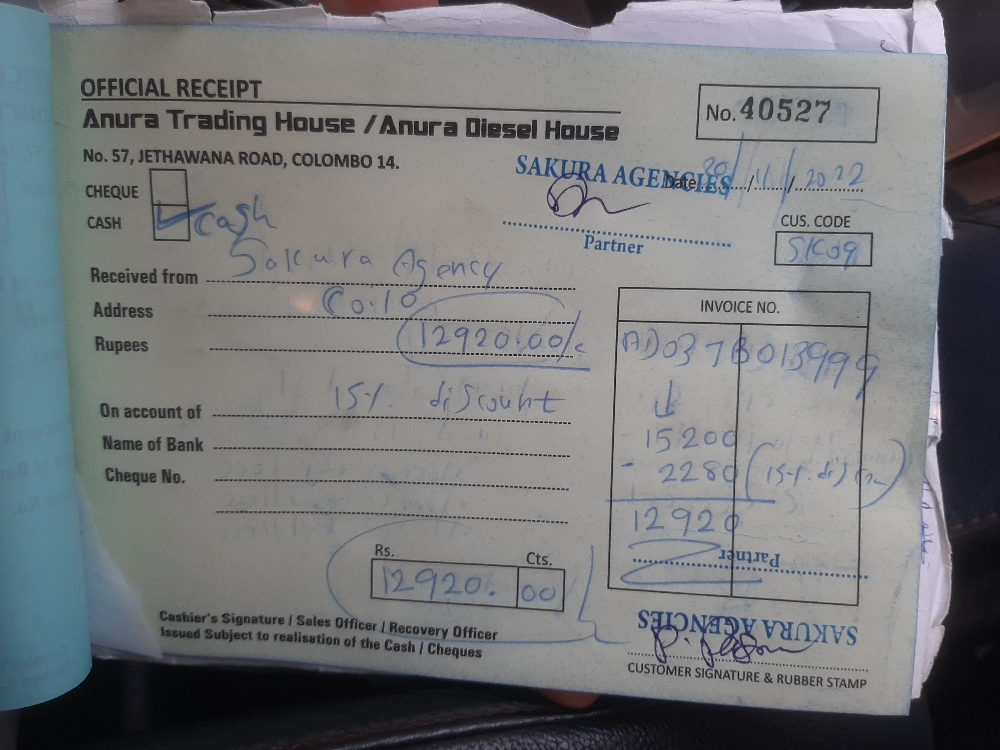 OFFICIAL RECEIPT
No. 40527
Anura Trading House / Anura Diesel House
No. 57, JETHAWANA ROAD, COLOMBO 14.
SAKURA AGENCIES
Date / 11 / 2022
CHEQUE
CASH cash
Partner
CUS. CODE
SK09
Received from Sakura Agency
Address Co.10
Rupees 12920.00/c
On account of 15% discount
Name of Bank
Cheque No.
INVOICE NO.
AD037B013999
15200
- 2280 (15%
12920
Partner
Rs. Cts.
12920. 00
SAKURA AGENCIES
Cashier's Signature / Sales Officer / Recovery Officer
Issued Subject to realisation of the Cash / Cheques
CUSTOMER SIGNATURE & RUBBER STAMP